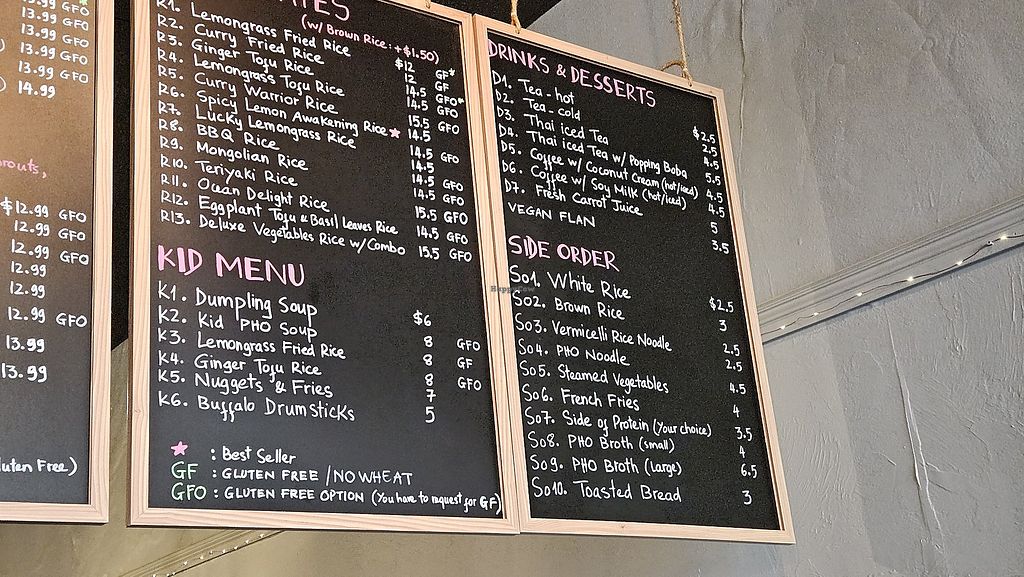 13.99 GFO
13.99 GFO
13.99 GFO
13.99 GFO
14.99
routs,
$12.99 GFO
12.99 GFO
12.99 GFO
12.99
12.99
12.99 GFO
13.99
13.99
luten Free)
(w/ Brown Rice: +$1.50)
R1. Lemongrass Fried Rice $12 GF*
R2. Curry Fried Rice 12 GF
R3. Ginger Tofu Rice 14.5 GFO*
R4. Lemongrass Tofu Rice 14.5 GFO
R5. Curry Warrior Rice 15.5 GFO
R6. Spicy Lemon Awakening Rice ★ 14.5
R7. Lucky Lemongrass Rice 14.5 GFO
R8. BBQ Rice 14.5
R9. Mongolian Rice 14.5 GFO
R10. Teriyaki Rice 14.5 GFO
R11. Ocean Delight Rice 15.5 GFO
R12. Eggplant Tofu & Basil Leaves Rice 14.5 GFO
R13. Deluxe Vegetables Rice w/Combo 15.5 GFO
KID MENU
K1. Dumpling Soup $6
K2. Kid PHO Soup 8 GFO
K3. Lemongrass Fried Rice 8 GF
K4. Ginger Tofu Rice 8 GFO
K5. Nuggets & Fries 7
K6. Buffalo Drumsticks 5
★ : Best Seller
GF : GLUTEN FREE / NO WHEAT
GFO : GLUTEN FREE OPTION (You have to request for GF)
DRINKS & DESSERTS
D1. Tea - hot $2.5
D2. Tea - cold 2.5
D3. Thai iced Tea 4.5
D4. Thai iced Tea w/ Popping Boba 5.5
D5. Coffee w/ Coconut Cream (hot/iced) 4.5
D6. Coffee w/ Soy Milk (hot/iced) 4.5
D7. Fresh Carrot Juice 5
VEGAN FLAN 3.5
SIDE ORDER
So1. White Rice $2.5
So2. Brown Rice 3
So3. Vermicelli Rice Noodle 2.5
So4. PHO Noodle 2.5
So5. Steamed Vegetables 4.5
So6. French Fries 4
So7. Side of Protein (Your choice) 3.5
So8. PHO Broth (small) 4
So9. PHO Broth (large) 6.5
So10. Toasted Bread 3